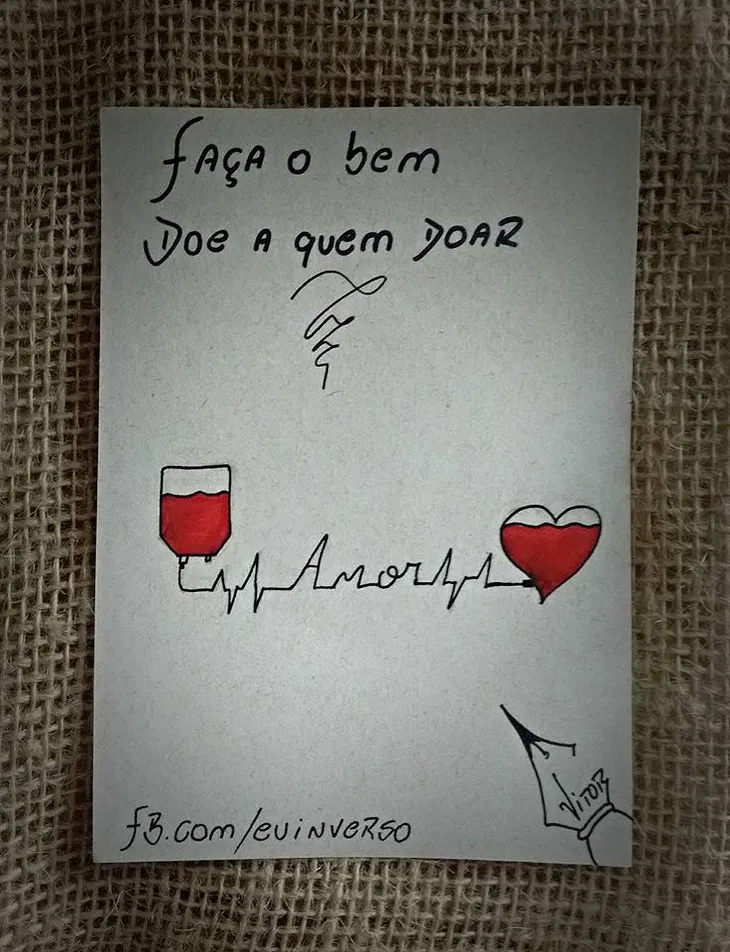 fAÇA o bem
Doe A quem DOAR
Amor
VITOR
fB.com/euinverso